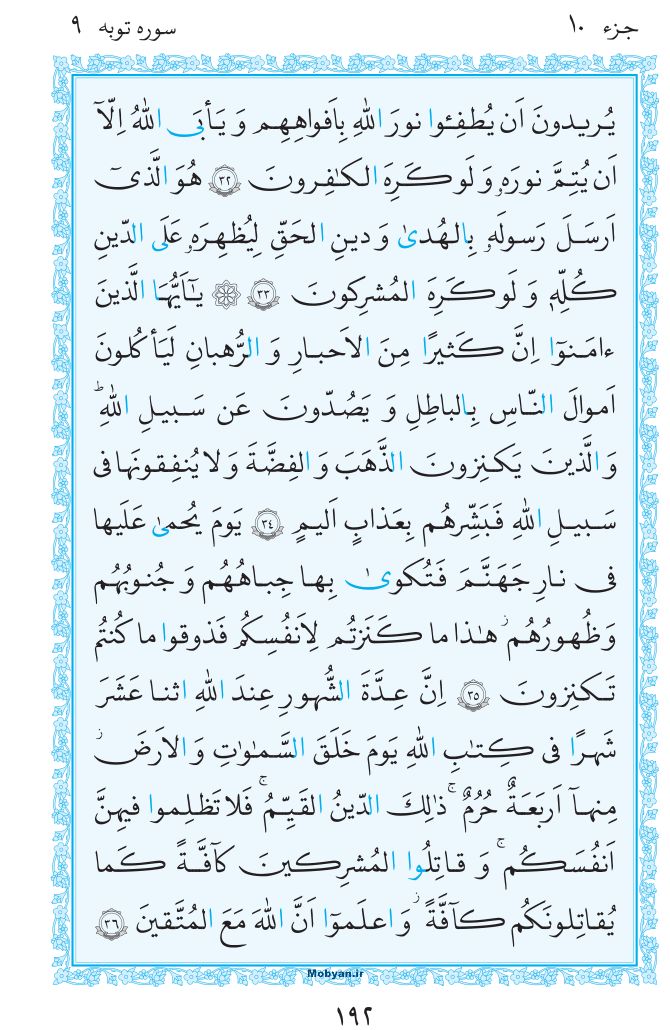 جزء ۱۰
سوره توبه ۹
يُريدونَ اَن يُطفِـٔوا نورَ اللهِ بِاَفواهِهِم وَ يَأبَى اللهُ اِلّآ
اَن يُتِمَّ نورَهٗ وَ لَو كَرِهَ الكٰفِرونَ ﴿٣٢﴾ هُوَ الَّذىٓ
اَرسَلَ رَسولَهٗ بِالهُدىٰ وَ دينِ الحَقِّ لِيُظهِرَهٗ عَلَى الدّينِ
كُلِّهٖ وَ لَو كَرِهَ المُشرِكونَ ﴿٣٣﴾ ۞ يٰٓاَيُّهَا الَّذينَ
ءامَنوٓا اِنَّ كَثيرًا مِنَ الاَحبارِ وَ الرُّهبانِ لَيَأكُلونَ
اَموالَ النّاسِ بِالباطِلِ وَ يَصُدّونَ عَن سَبيلِ اللهِۗ
وَ الَّذينَ يَكنِزونَ الذَّهَبَ وَ الفِضَّةَ وَ لا يُنفِقونَها فى
سَبيلِ اللهِ فَبَشِّرهُم بِعَذابٍ اَليمٍ ﴿٣٤﴾ يَومَ يُحمىٰ عَلَيها
فى نارِ جَهَنَّمَ فَتُكوىٰ بِها جِباهُهُم وَ جُنوبُهُم
وَ ظُهورُهُمۖ هٰذا ما كَنَزتُم لِاَنفُسِكُم فَذوقوا ما كُنتُم
تَكنِزونَ ﴿٣٥﴾ اِنَّ عِدَّةَ الشُّهورِ عِندَ اللهِ اثنا عَشَرَ
شَهرًا فى كِتٰبِ اللهِ يَومَ خَلَقَ السَّمٰوٰتِ وَ الاَرضَۖ
مِنهآ اَربَعَةٌ حُرُمٌۚ ذٰلِكَ الدّينُ القَيِّمُۚ فَلا تَظلِموا فيهِنَّ
اَنفُسَكُمۚ وَ قاتِلُوا المُشرِكينَ كآفَّةً كَما
يُقاتِلونَكُم كآفَّةًۖ وَ اعلَموٓا اَنَّ اللهَ مَعَ المُتَّقينَ ﴿٣٦﴾
Mobyan.ir
۱۹۲